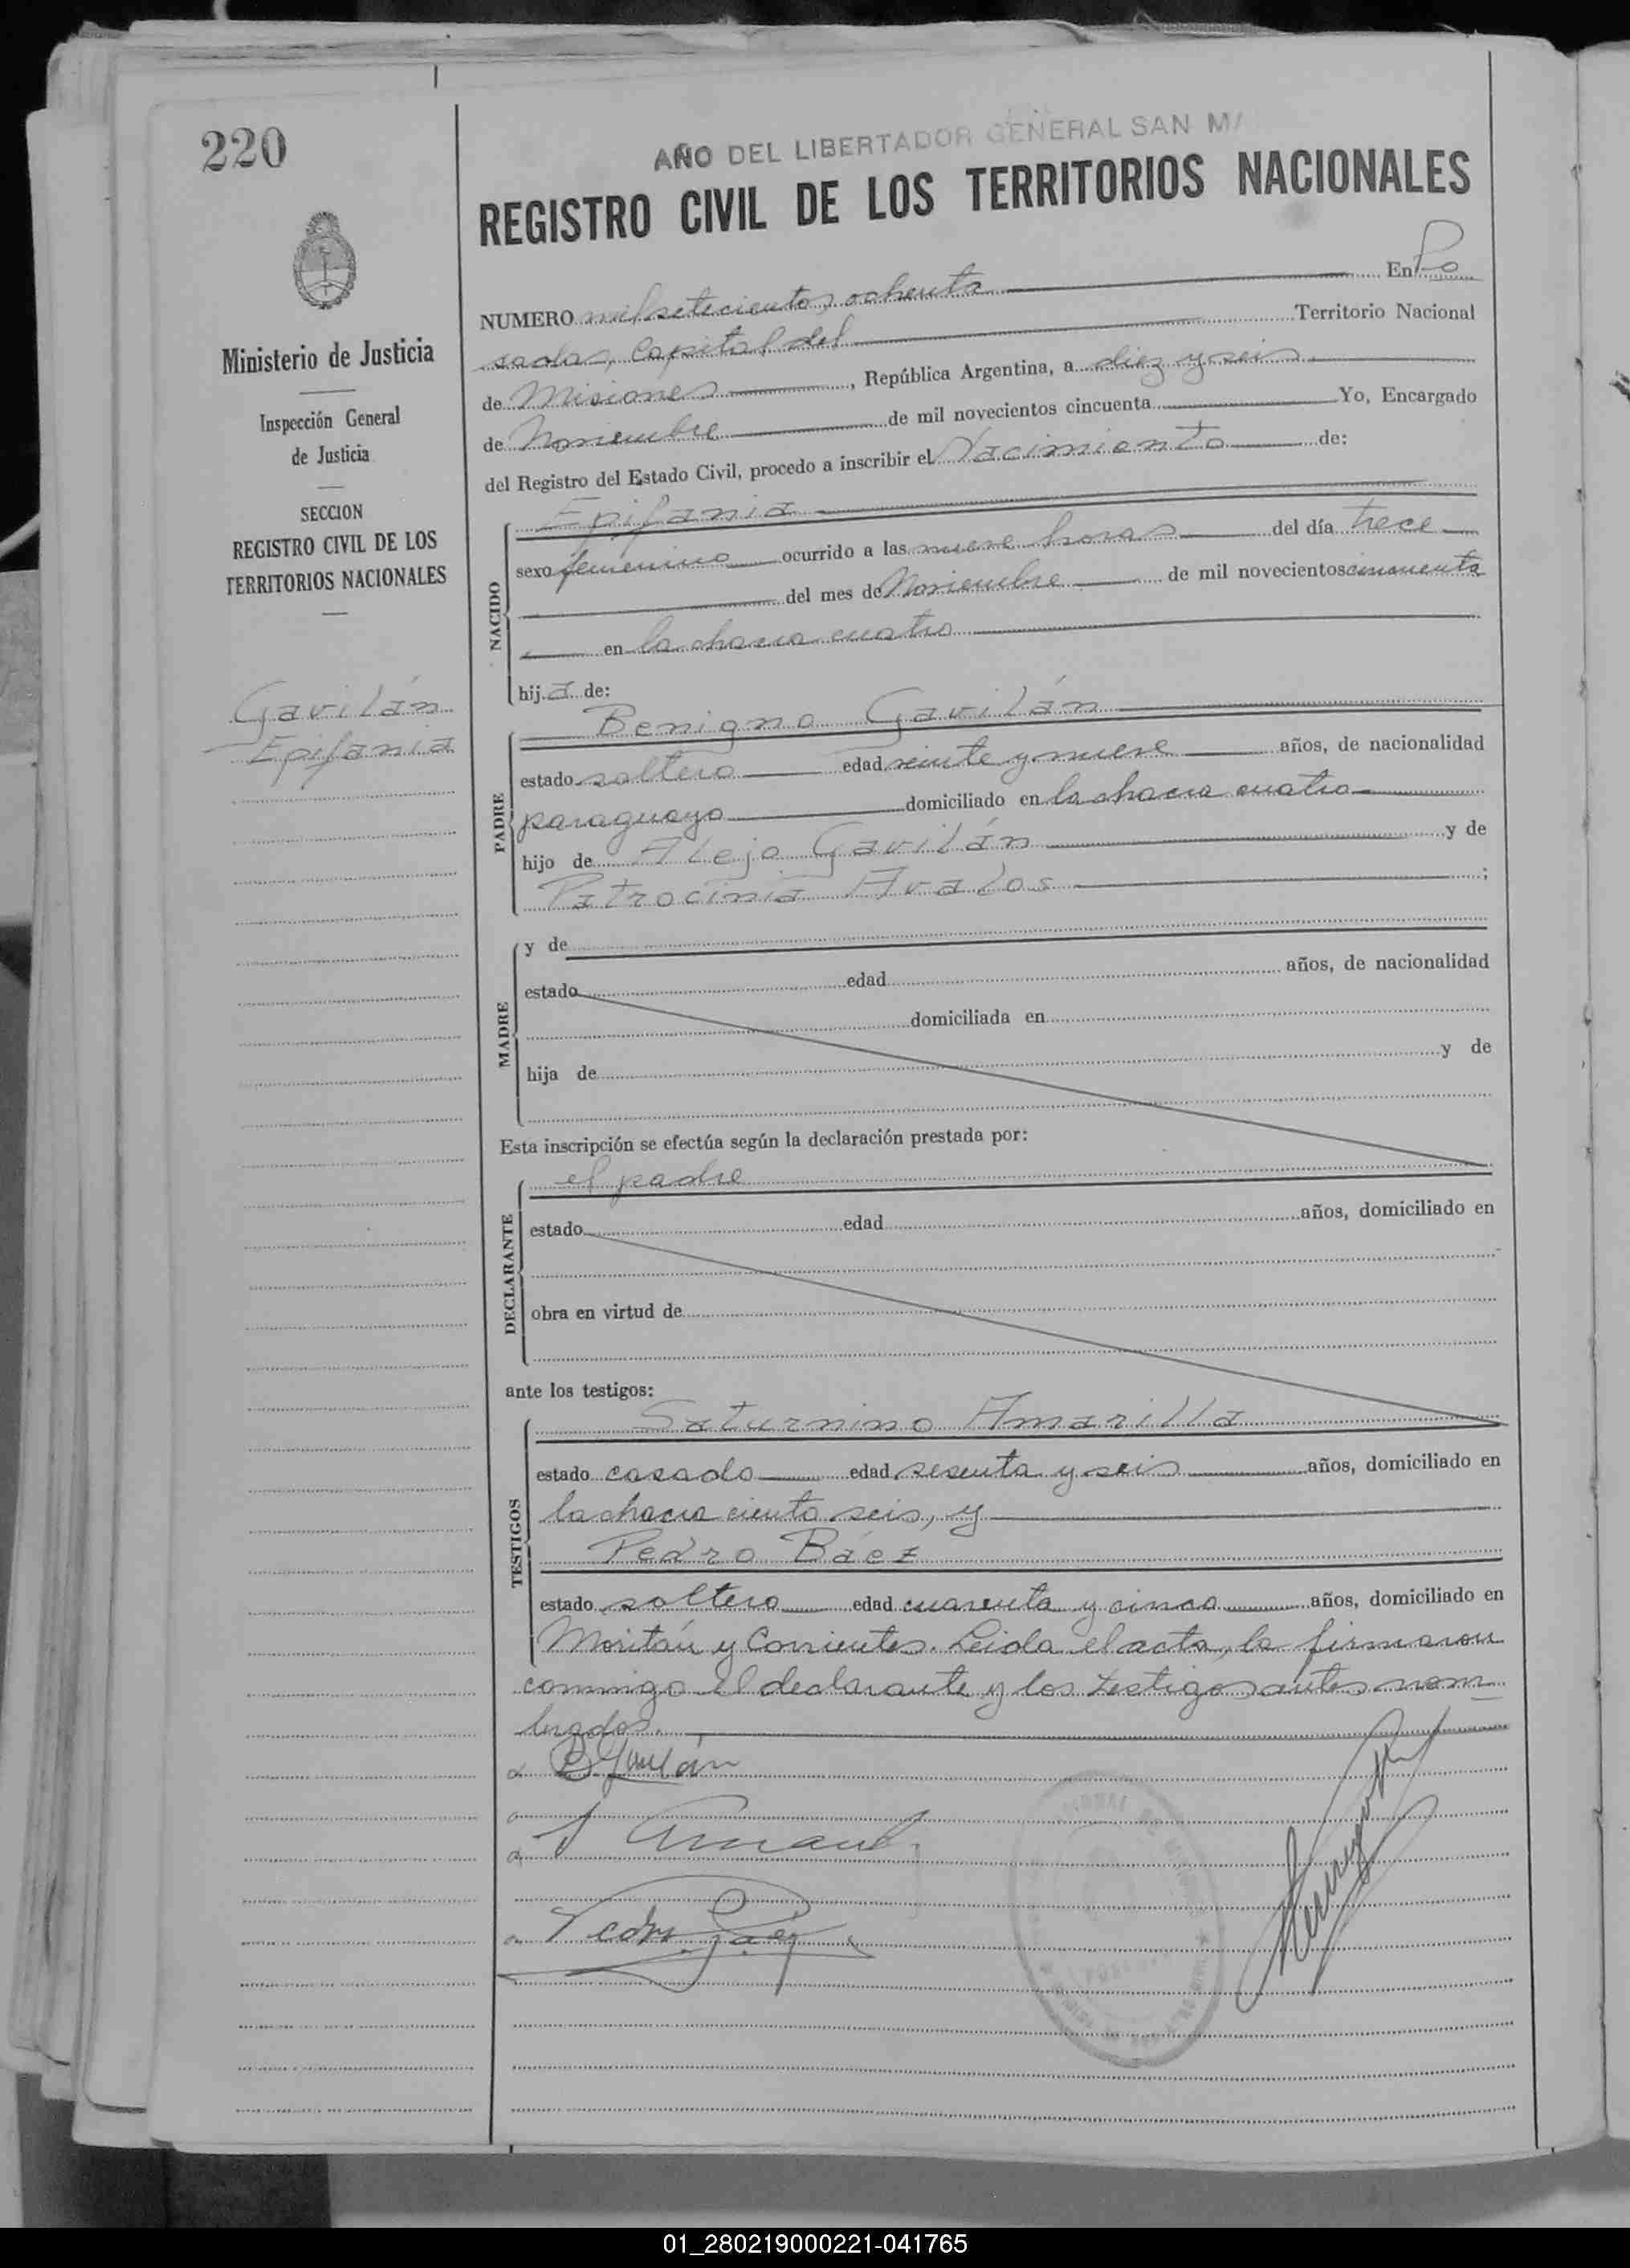 220
AÑO DEL LIBERTADOR GENERAL SAN MA
REGISTRO CIVIL DE LOS TERRITORIOS NACIONALES
Ministerio de Justicia
Inspección General
de Justicia
SECCION
REGISTRO CIVIL DE LOS
TERRITORIOS NACIONALES
Gavilán
Epifania
NUMERO mil setecientos ochenta En Po
sadas, Capital del Territorio Nacional
de Misiones, República Argentina, a diez y seis
de Noviembre de mil novecientos cincuenta Yo, Encargado
del Registro del Estado Civil, procedo a inscribir el Nacimiento de:
NACIDO
Epifania
sexo femenino ocurrido a las nueve horas del día trece
del mes de Noviembre de mil novecientos cincuenta
en la chacra cuatro
hija de:
PADRE
Benigno Gavilán
estado soltero edad veinte y nueve años, de nacionalidad
paraguayo domiciliado en la chacra cuatro
hijo de Alejo Gavilán y de
Patrocinia Avalos ;
MADRE
y de
estado edad años, de nacionalidad
domiciliada en
hija de y de
Esta inscripción se efectúa según la declaración prestada por:
DECLARANTE
el padre
estado edad años, domiciliado en
obra en virtud de
ante los testigos:
TESTIGOS
Saturnino Amarilla
estado casado edad sesenta y seis años, domiciliado en
la chacra ciento seis, y
Pedro Báez
estado soltero edad cuarenta y cinco años, domiciliado en
y Corrientes. Leida el acta, la firmaron
conmigo el declarante y los testigos antes nom
brados.
B Gavilán
Pedro Báez
01_280219000221-041765